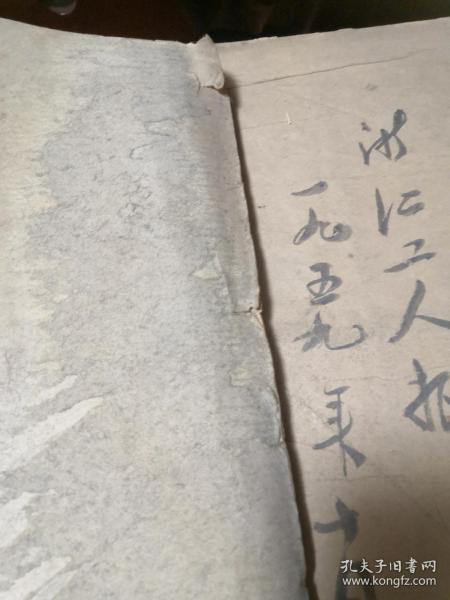 浙江工人报
一九五九年十
孔夫子旧书网
www.kongfz.com